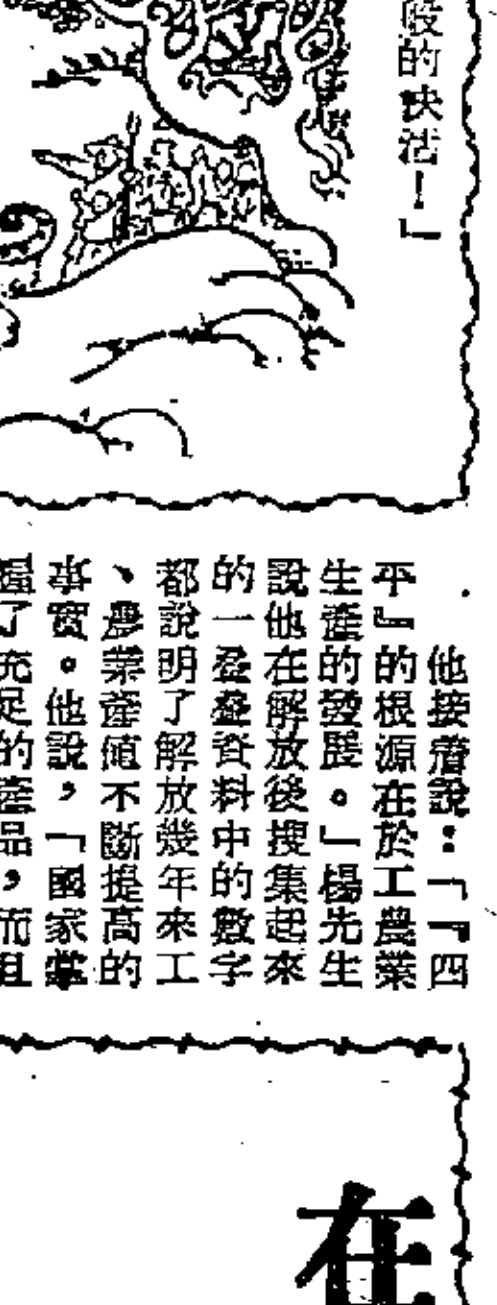 的快活！」
他接着說：「『四
平』的根源在於工農業
生產的發展。」楊先生
說他在解放後搜集起來
的一叠叠資料中的數字
都說明了解放幾年來工
、農業產值不斷提高的
事實。他說，「國家掌
了充足的產品，而且
在